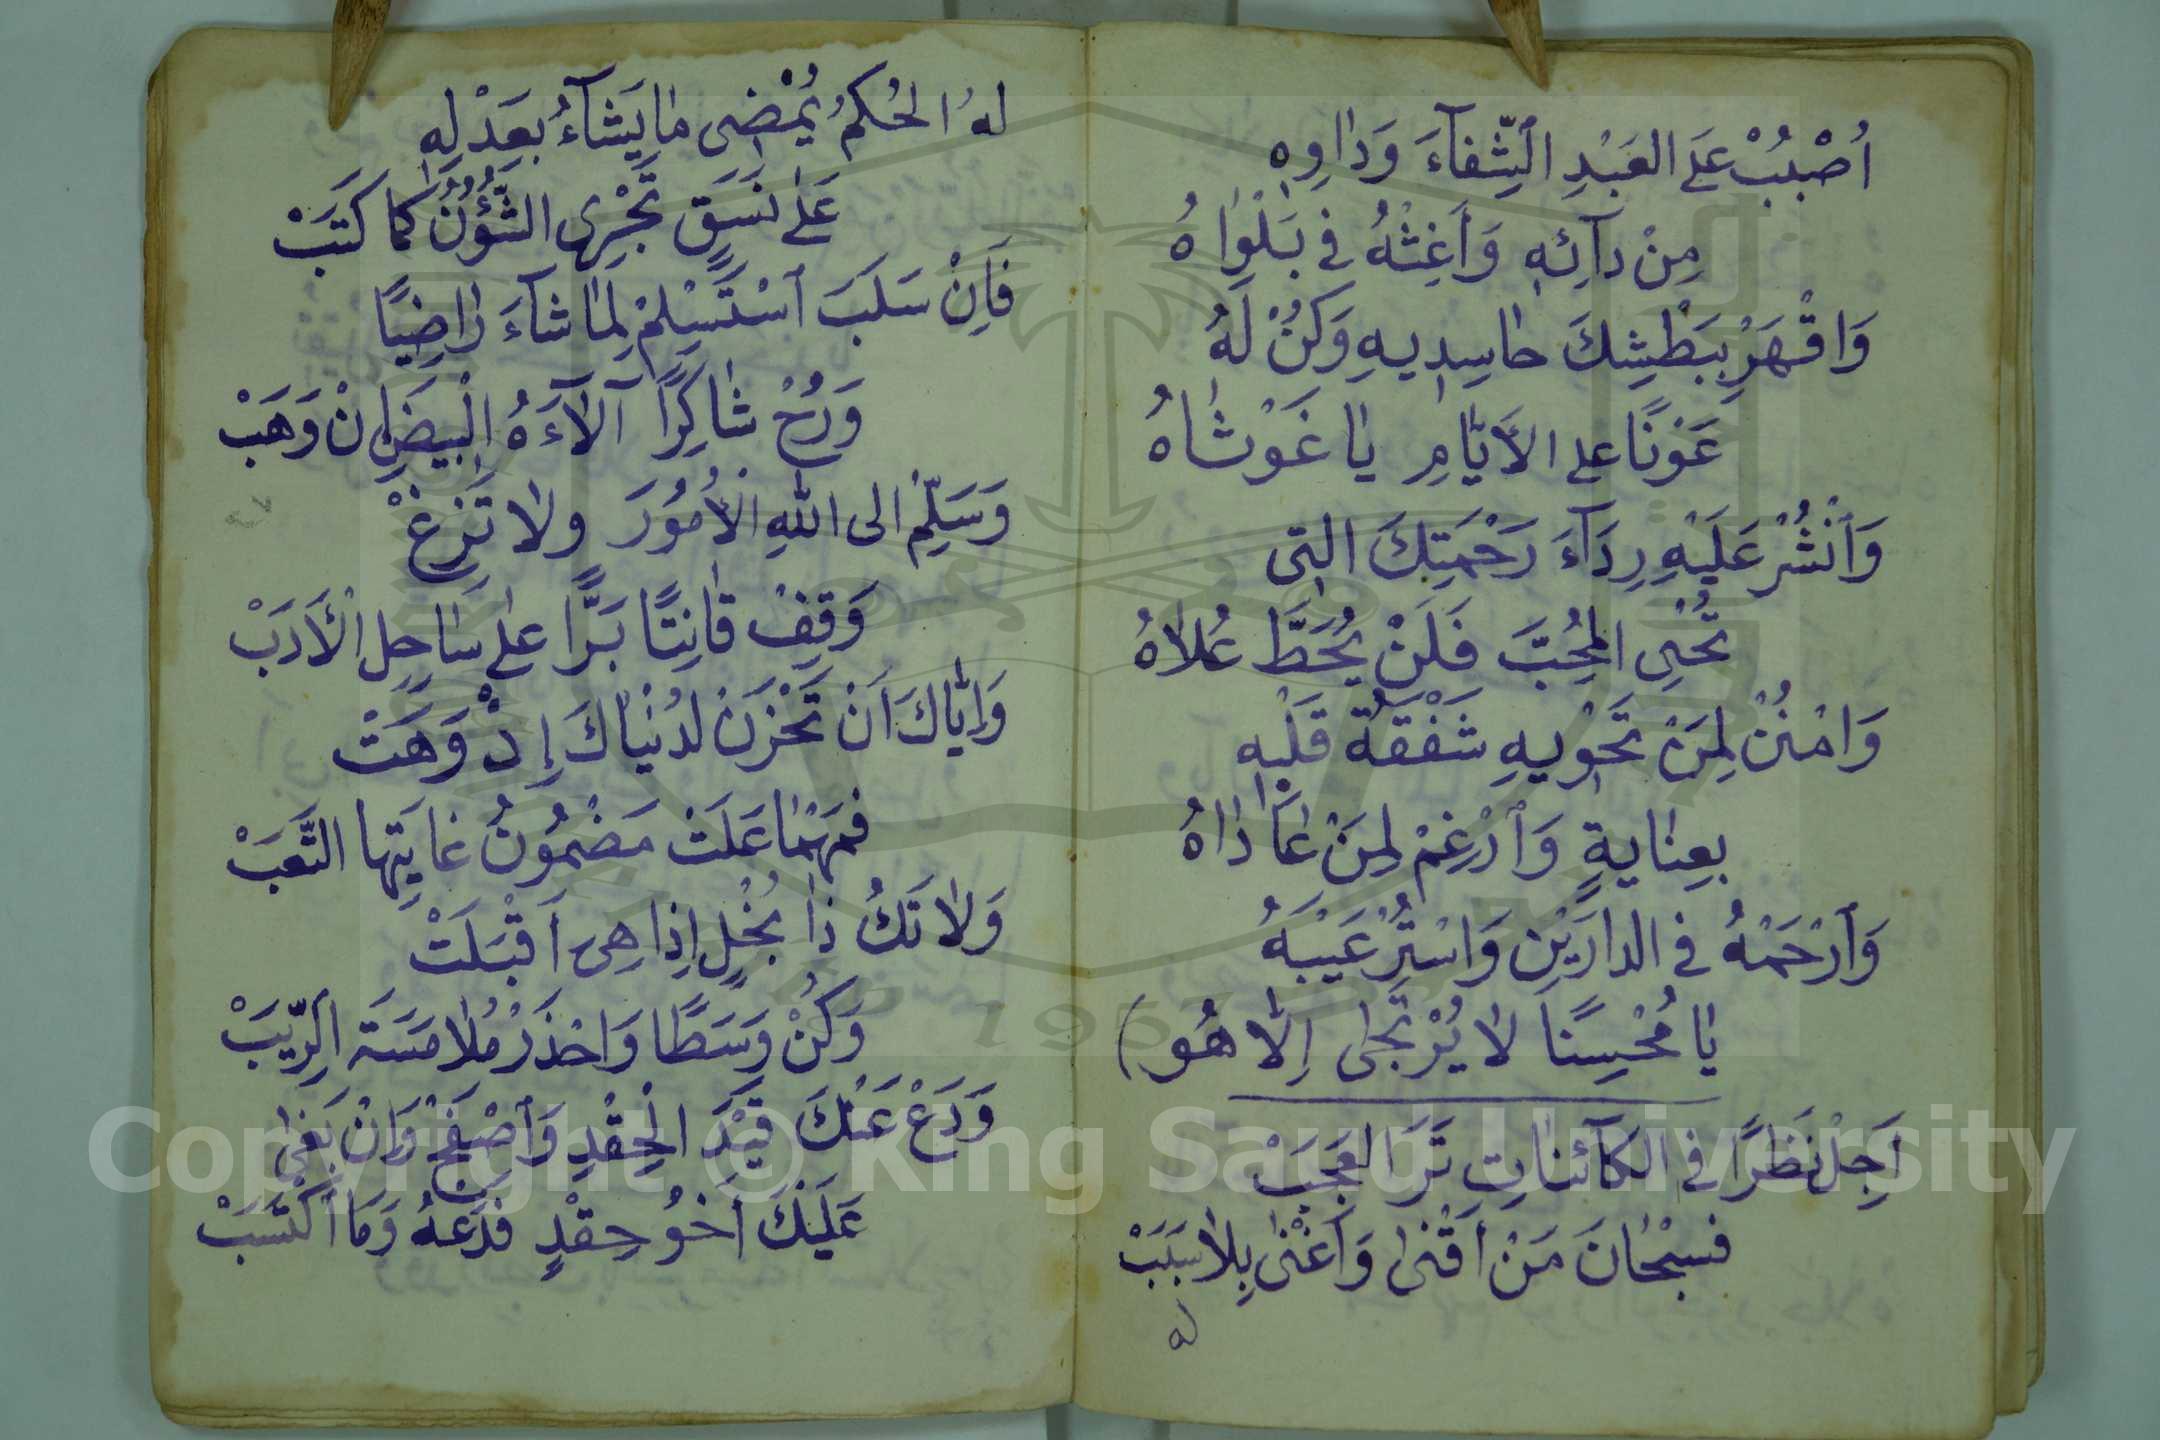 اُصْبُبْ عَلَى العَبْدِ الشِّفآءَ وَدٰاوِهِ
مِنْ دآئِهِ وَأَغِثْهُ في بَلْوٰاهُ
وَاقْهَرْ بِبَطْشِكَ حٰاسِديهِ وَكُنْ لَهُ
عَوْنًا على الأَيّٰامِ يٰا غَوْثٰاهُ
وَٱنْشُرْ عَلَيْهِ رِدَآءَ رَحْمَتِكَ التى
تُحْيِى المُحِبَّ فَلَنْ يُحَطَّ عُلاٰهُ
وَامْنُنْ لِمَنْ تَحْويهِ شَفْقَةُ قَلْبِهِ
بِعِنٰايةٍ وَٱرْغِمْ لِمَنْ عٰادٰاهُ
وَٱرْحَمْهُ في الدارَيْنِ وَاسْتُرْ عَيْبَهُ
يٰا مُحْسِنًا لاٰ يُرْتَجٰى اِلاّٰ هُو)
اَجِلْ نَظَرًا في الكآئنٰاتِ تَرَ العَجَبْ
فسبْحٰانَ مَنْ أَقْنىٰ وَأَغْنىٰ بِلاٰ سَبَبْ
له
لهُ الحُكمُ يُمْضِى مٰا يَشآءُ بِعَدْلِهِ
عَلىٰ نَسَقٍ تَجْرِى الشُّؤُنُ كما كَتَبْ
فَاِنْ سَلَبَ ٱسْتَسْلِمْ لِمٰا شآءَ رٰاضِيًا
وَرُحْ شٰاكِرًا آلآءَهُ الْبيضَ اِنْ وَهَبْ
وَسَلِّمْ الى اللهِ الأُمُورَ ولاٰ تَزِغْ
وَقِفْ قٰانِتًا بَرًّا علىٰ سٰاحِلِ الْأَدَبْ
وَاِيّٰاكَ اَنْ تَحْزَنْ لدُنْيٰاكَ إِذْ وَهَتْ
فمَهْمٰا عَلَتْ مَضْمُونُ غٰايَتِها التَّعَبْ
وَلاٰ تَكُ ذٰا بُخْلٍ اِذا هِىَ أَقْبَلَتْ
وَكُنْ وَسَطًا وَاحْذَرْ مُلاٰمَسَةَ الرِّيَبْ
وَدَعْ عَنْكَ قَيْدَ الْحِقْدِ وَٱصْفَحْ وَاِنْ بَغىٰ
عَلَيْكَ أَخُو حِقْدٍ فَدَعهُ وَمَا ٱكْتَسَبْ
Copyright © King Saud University
1957